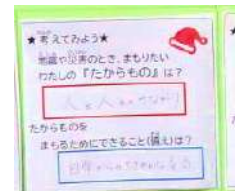 ★考えてみよう★
地震や災害のとき、まもりたい
わたしの『たからもの』は？
人と人のつながり
たからものを
まもるためにできること(備え)は？